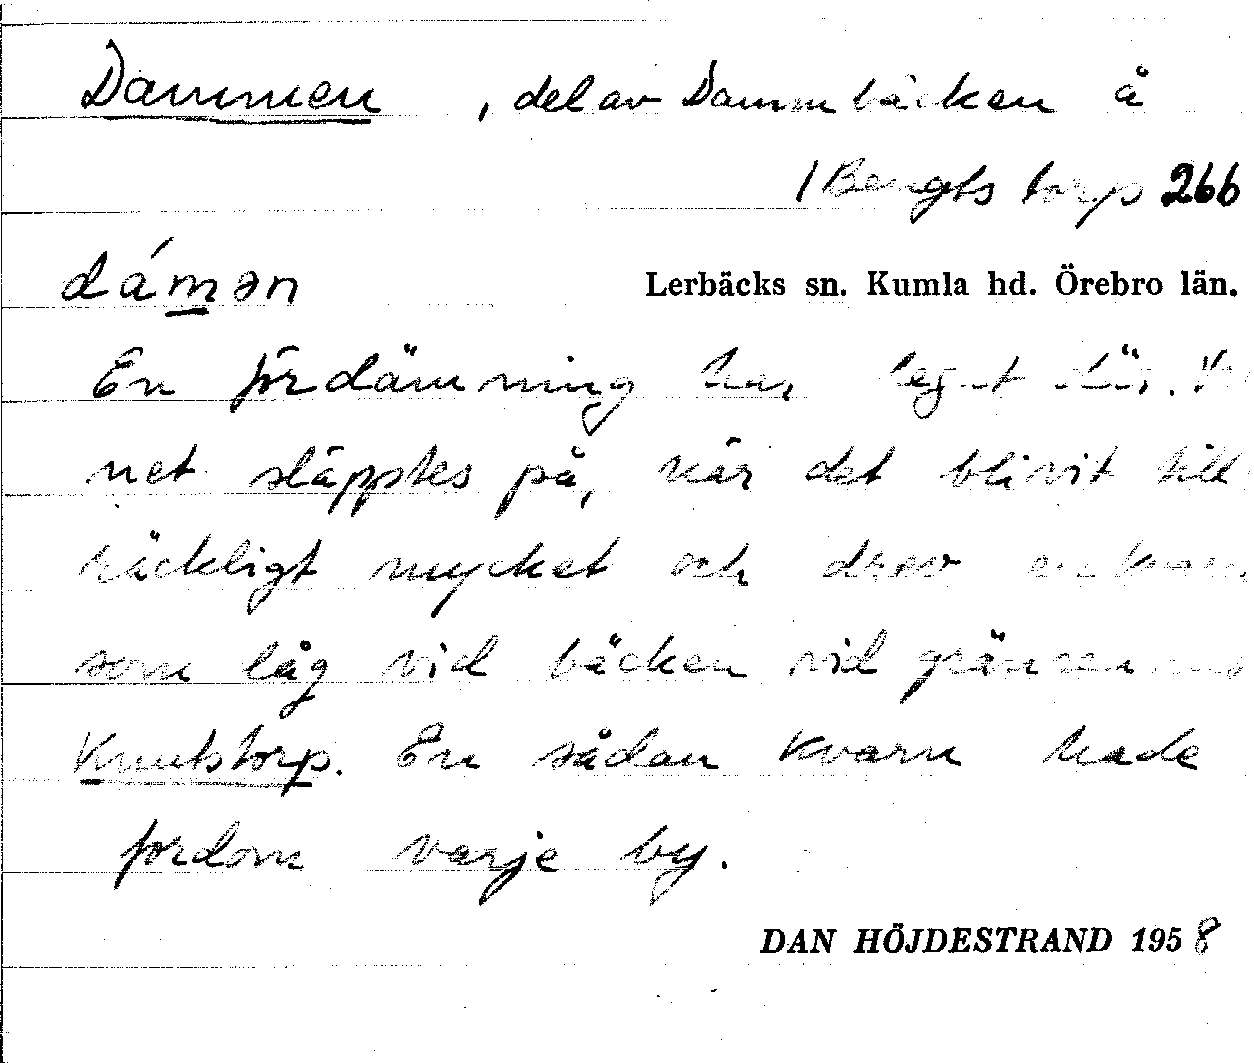 Dammen, del av Dammbäcken å
/Bengtstorp 266
dámən
Lerbäcks sn. Kumla hd. Örebro län.
En fördämning har legat där.
net släpptes på, när det blivit till
räckligt mycket och drev en kvarn
som låg vid bäcken vid gränsen mot
Knutstorp. En sådan kvarn hade
fordom varje by.
DAN HÖJDESTRAND 1958